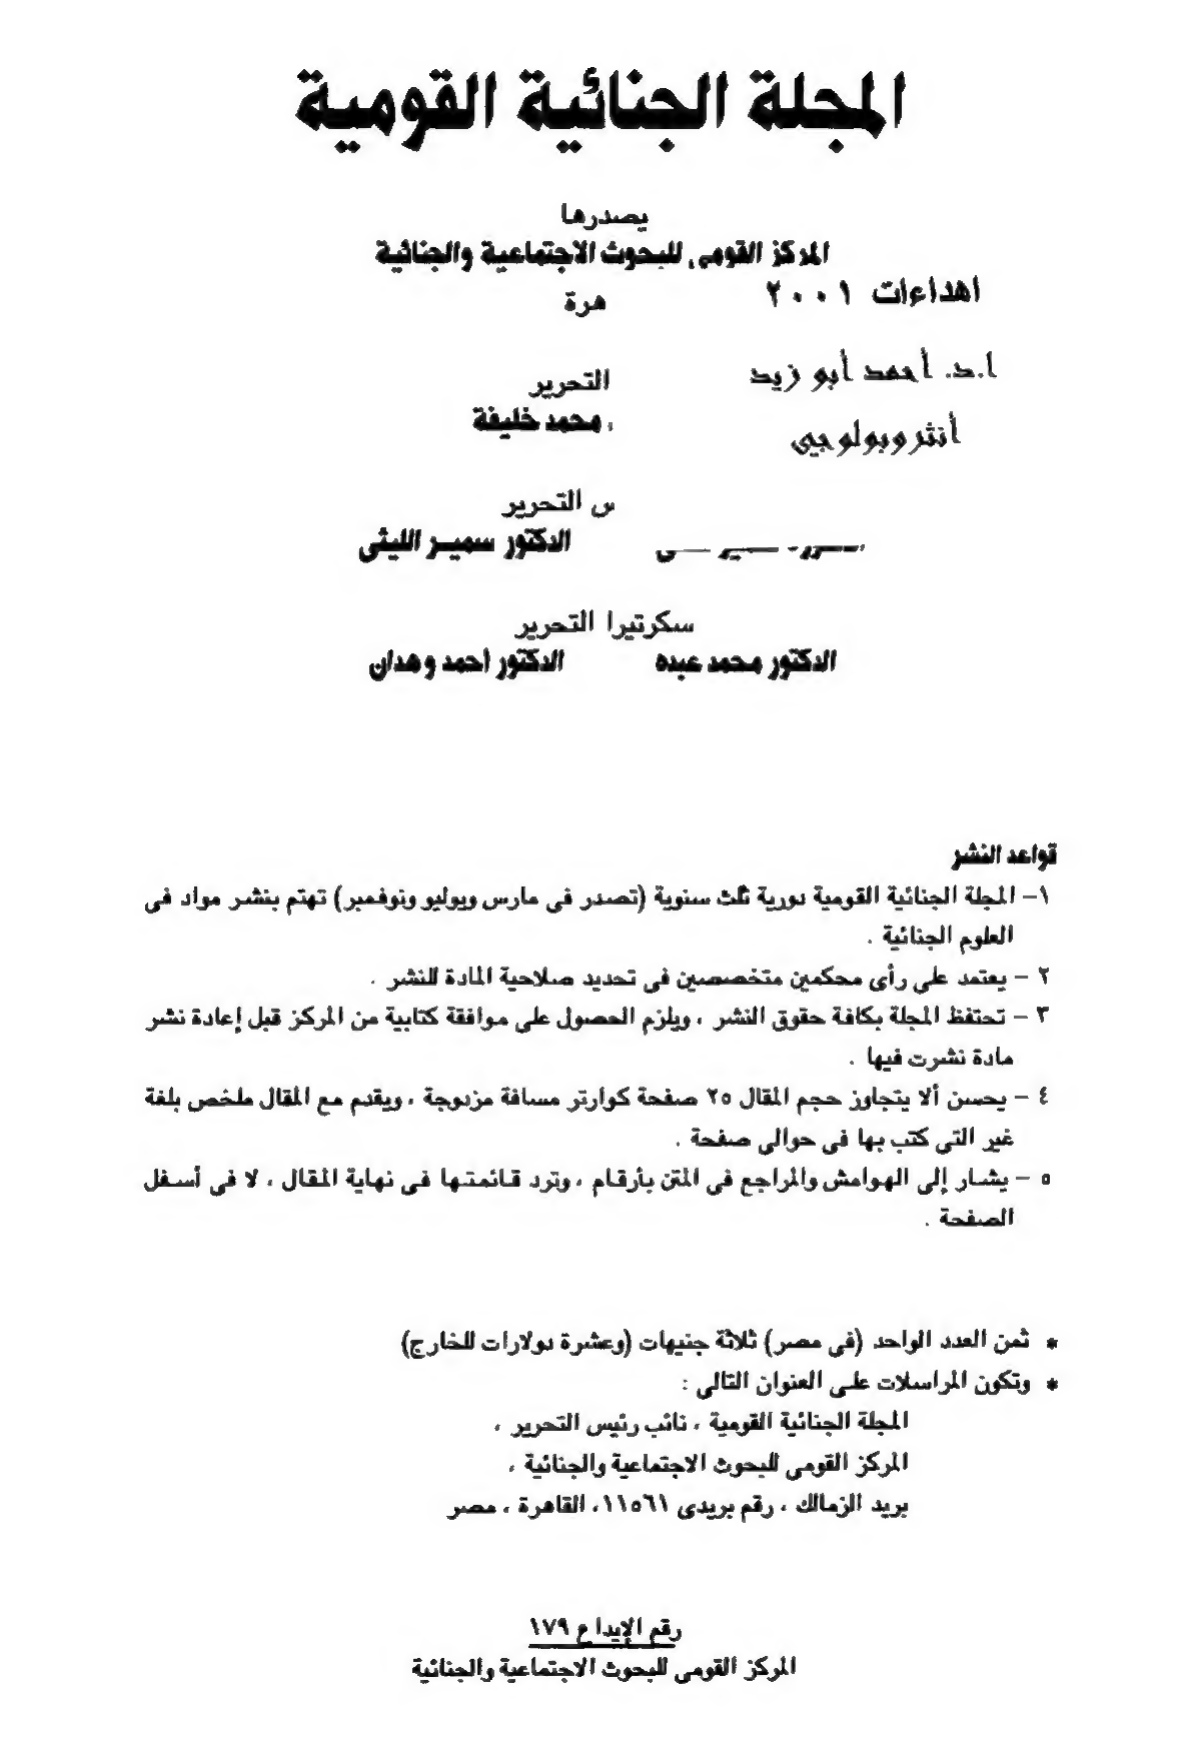 المجلة الجنائية القومية
يصدرها
المركز القومى للبحوث الاجتماعية والجنائية
اهداءات ٢٠٠١
هرة
ا.د. أحمد أبو زيد
التحرير
محمد خليفة
أنثروبولوجى
س التحرير
الدكتور سميـر الليثى
سكرتيرا التحرير
الدكتور محمد عبده الدكتور أحمد وهدان
قواعد النشر
١– المجلة الجنائية القومية دورية ثلث سنوية (تصدر فى مارس ويوليو ونوفمبر) تهتم بنشر مواد فى
العلوم الجنائية .
٢ – يعتمد على رأى محكمين متخصصين فى تحديد صلاحية المادة للنشر .
٣ – تحتفظ المجلة بكافة حقوق النشر ، ويلزم الحصول على موافقة كتابية من المركز قبل إعادة نشر
مادة نشرت فيها .
٤ – يحسن ألا يتجاوز حجم المقال ٢٥ صفحة كوارتر مسافة مزدوجة ، ويقدم مع المقال ملخص بلغة
غير التى كتب بها فى حوالى صفحة .
٥ – يشار إلى الهوامش والمراجع فى المتن بأرقام ، وترد قائمتها فى نهاية المقال ، لا فى أسفل
الصفحة .
* ثمن العدد الواحد (فى مصر) ثلاثة جنيهات (وعشرة دولارات للخارج)
* وتكون المراسلات على العنوان التالى :
المجلة الجنائية القومية ، نائب رئيس التحرير ،
المركز القومى للبحوث الاجتماعية والجنائية ،
بريد الزمالك ، رقم بريدى ١١٥٦١، القاهرة ، مصر
رقم الإيداع ١٧٩
المركز القومى للبحوث الاجتماعية والجنائية